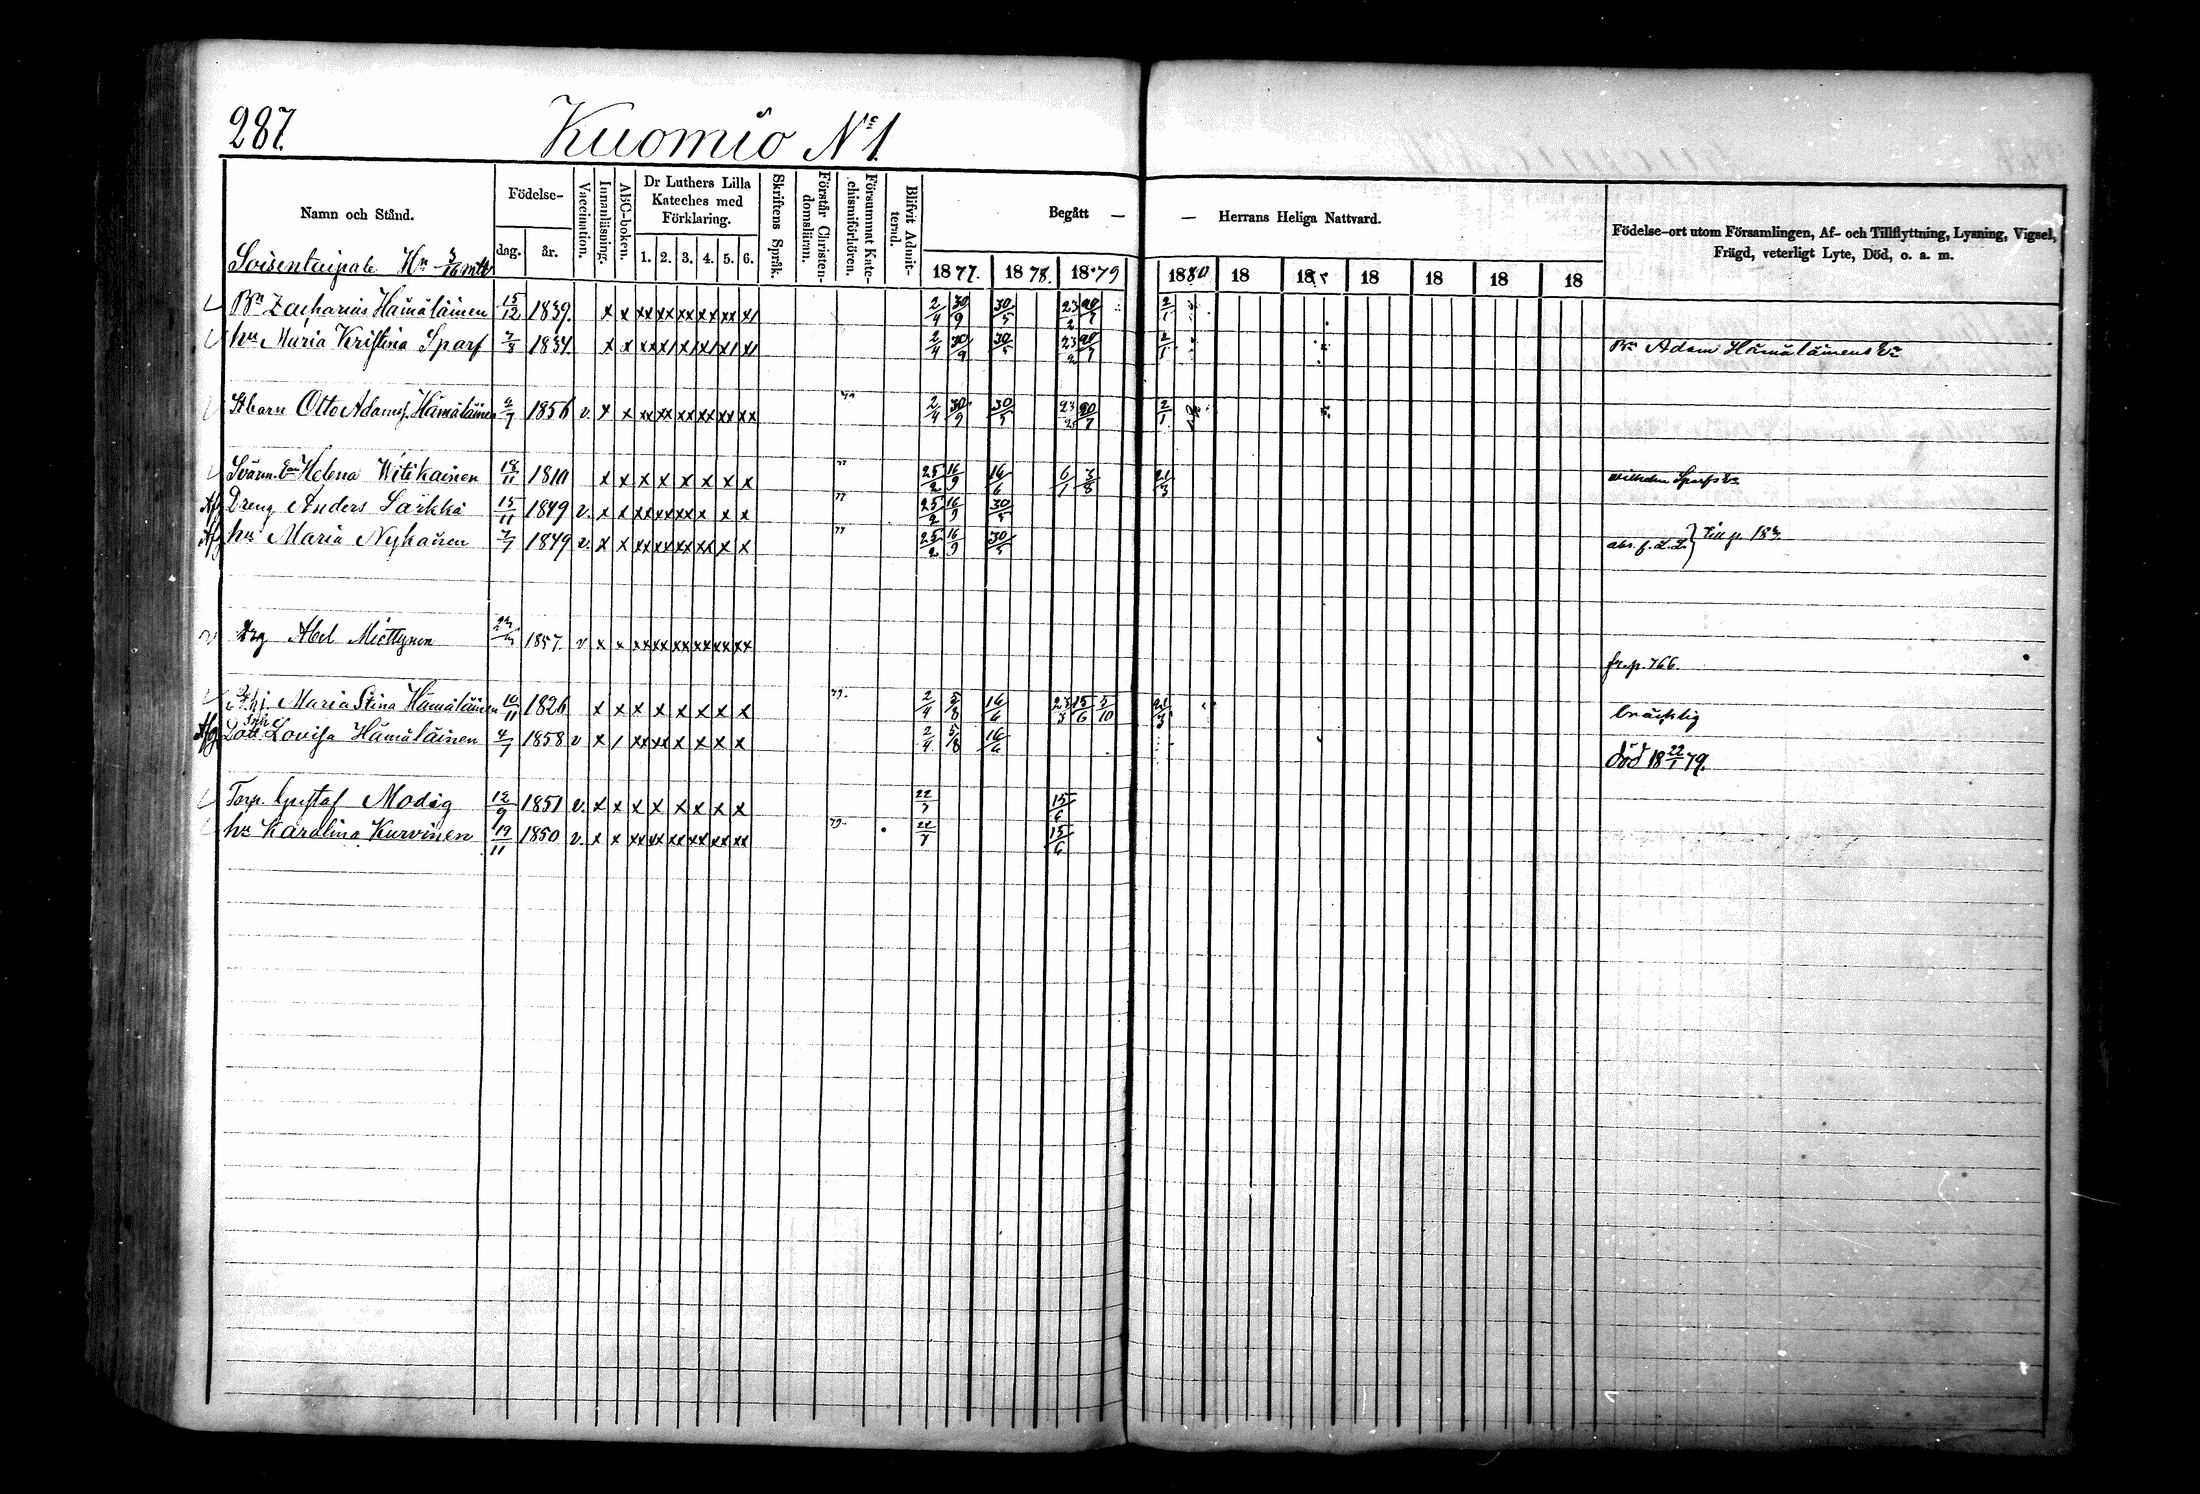 287.
Kuomio No 1.
Namn och Stånd.
Födelse-
dag.
år.
Vaccination.
Innanläsning.
ABC-boken.
Dr Luthers Lilla Kateches med Förklaring.
1. 2. 3. 4. 5. 6.
Skriftens Språk.
Förstår Christen-domsläran.
Försummat Kate-chismiförhören.
Blifvit Admit-terad.
Begått — — Herrans Heliga Nattvard.
1877. 1878. 1879 1880 18 18 18 18 18 18
Födelse-ort utom Församlingen, Af- och Tillflyttning, Lysning, Vigsel, Frägd, veterligt Lyte, Död, o. a. m.
Soisentaipale Hn 3/16 mtl
Bn Zacharias Hämäläinen 15/12 1839. x x xx xx xx xx xx 2/4 30/9 30/5 23/2 20/7 2/1
hu Maria Kristina Sparf 1834. x x 2/4 30/9 30/5 23/2 20/7 2/1 Bn Adam Hämäläinens
Otto Adamsf. Hämäläinen 1856 v. x x xx xx xx xx xx xx 2/4 30/9 30/5 23/2 20/7 2/1
Helena Witikainen 18/11 1810 x x x x x x x x 25/2 16/9 16/6 6/1 3/8 21/3 Wilhelm Sparfs
Af Dreng Anders Särkkä 15/11 1849 v. x x xx xx xx x x x 25/2 16/9 30/5
Af hu Maria Nyhänen 1849 v. x x xx xx xx xx x x 77 25/2 16/9 30/5
Drg Abel Miettynen 1857. v x x xx xx xx xx xx xx fr. p. 766.
Maria Stina Hämäläinen 10/11 1826 x x x x x x x x 79. 2/4 5/8 16/6 15/6 5/10 21/3 bräcklig
Afg Dott. Lovisa Hämäläinen 4/7 1858 v x / xx xx x x x x 2/4 5/8 16/6 död 18 22/1 79.
Torp. Gustaf Modig 12/9 1851 v. x x x x x x x x 22/7 15/6
hu Karolina Kurvinen 19/11 1850 v. x x xx xx xx xx xx xx 79. 22/7 15/6